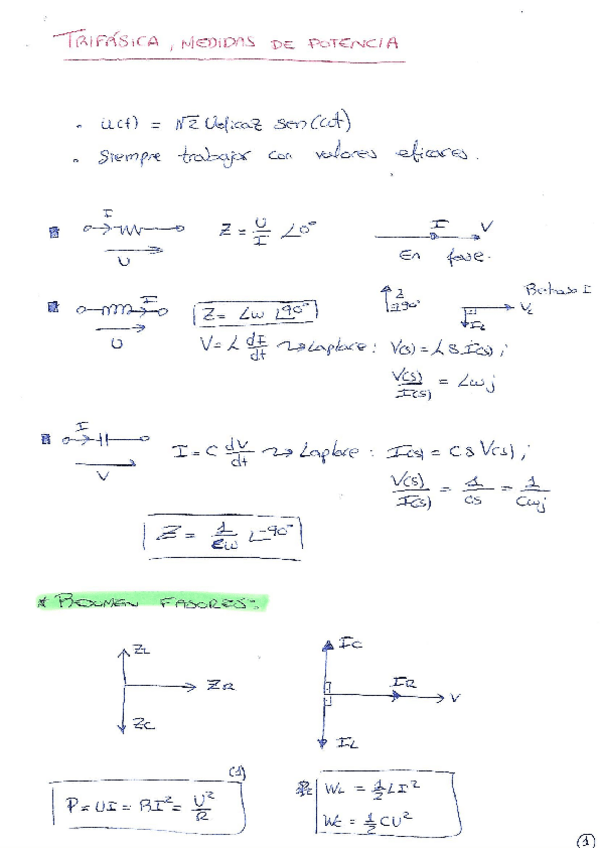 TRIFÁSICA, MEDIDAS DE POTENCIA
• u(t) = √2 Ueficaz sen(ωt)
• Siempre trabajar con valores eficaces.
I
U
Z = U/I ∠0°
I V
En fase.
I
U
Z = Lω ∠90°
Z
90°
Retraso I
VL
IL
V = L dI/dt ⇝ Laplace: V(s) = L s I(s);
V(s)/I(s) = Lωj
I
V
I = C dV/dt ⇝ Laplace: I(s) = C s V(s);
V(s)/I(s) = 1/cs = 1/Cωj
Z = 1/Cω ∠-90°
* RESUMEN FASORES:
ZL
ZR
ZC
IC
IR
V
IL
(1)
P = UI = RI² = U²/R
WL = 1/2 LI²
WC = 1/2 CU²
1